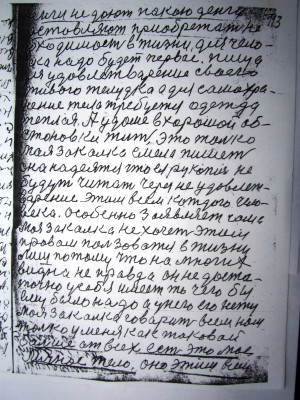 деньги не дают покою деньги
заставляют приобретать не
обходимость в жизни, для чело-
века надо будет первое. пища
для удовлетварение своего
живого желудка а для самахра-
нение тела требуется одежда
теплая. А удоме в хорошой об-
становки жить. Это толко
моя закалка смела пишет
она надеятся что ея рукопис не
будут читат через не удовлет-
варение этим всем каждого чло-
века. особенно Заявляет сама
моя закалка не хочет этим
правам ползоватся в жизни
ему потому что на многих
видна не правда он не доста-
точно у себя имеет то чего бы
ему было надо а у него его нету
моя закалка говарит всем нам
толко у меня как таковой
от всех ест это мое
тело, оно этим всем
93